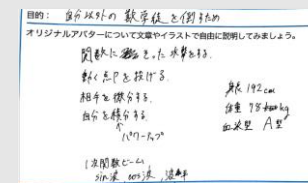 目的: 自分以外の数学徒を倒すため
オリジナルアバターについて文章やイラストで自由に説明してみましょう。
関数にそった攻撃をする.
動く点Pを投げる.
相手を微分する.
自分を積分する.
↑
パワーアップ
身長 192cm
体重 98kg
血液型 A型
1次関数ビーム
sin波 cos波,